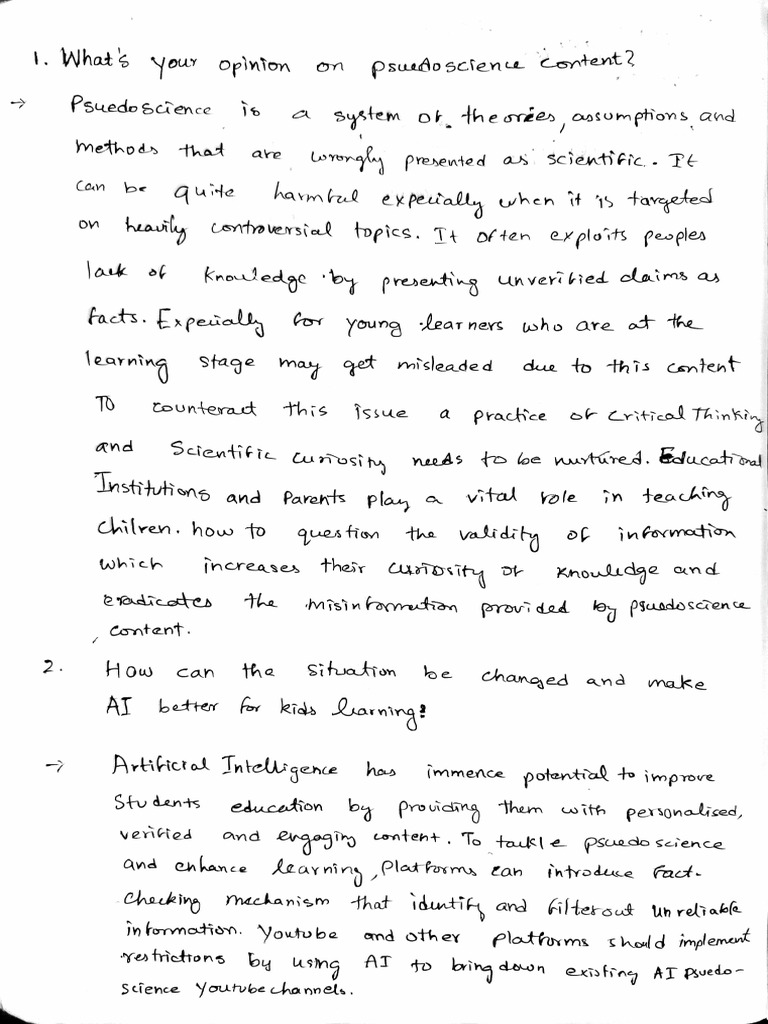 1. What's your opinion on psuedoscience content?
→ Psuedoscience is a system of theories, assumptions, and
methods that are wrongly presented as scientific. It
can be quite harmful expecially when it is targeted
on heavily controversial topics. It often exploits peoples
lack of knowledge by presenting unverified claims as
facts. Expecially for young learners who are at the
learning stage may get misleaded due to this content
To counteract this issue a practice of Critical Thinking
and Scientific curiosity needs to be nurtured. Educational
Institutions and Parents play a vital role in teaching
chilren. how to question the validity of information
which increases their curiosity of knowledge and
eradicates the misinformation provided by psuedoscience
content.
2. How can the situation be changed and make
AI better for kids learning?
→ Artificial Intelligence has immence potential to improve
Students education by providing them with personalised,
verified and engaging content. To tackle psuedoscience
and enhance learning, Platforms can introduce fact-
checking mechanism that identify and filterout unreliable
information. Youtube and other platforms should implement
restrictions by using AI to bring down existing AI psuedo-
science Youtube channels.